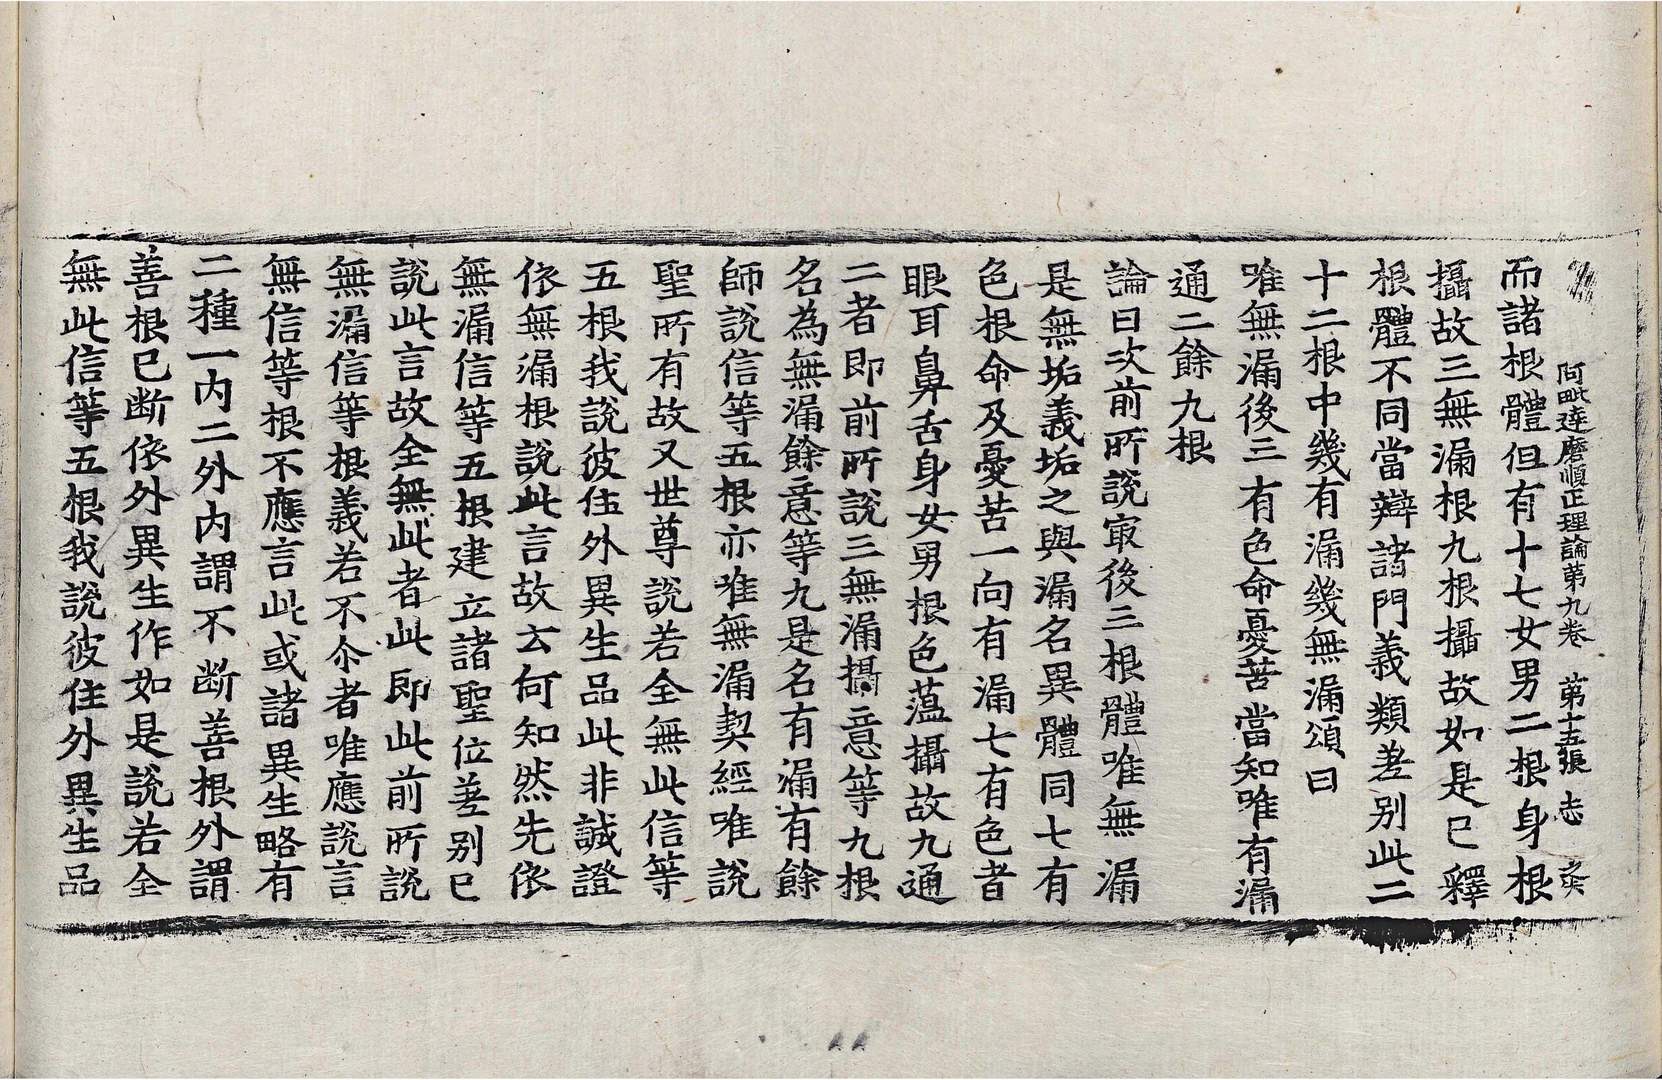 阿毗達磨順正理論第九卷　第十五張　志
而諸根體但有十七女男二根身根
攝故三無漏根九根攝故如是已釋
根體不同當辯諸門義類差别此二
十二根中幾有漏幾無漏頌曰
唯無漏後三有色命憂苦當知唯有漏
通二餘九根
論曰次前所說㝡後三根體唯無漏
是無垢義垢之與漏名異體同七有
色根命及憂苦一向有漏七有色者
眼耳鼻舌身女男根色蕰攝故九通
二者即前所說三無漏攝意等九根
名為無漏餘意等九是名有漏有餘
師說信等五根亦唯無漏契經唯說
聖所有故又世尊說若全無此信等
五根我說彼住外異生品此非誠證
依無漏根說此言故云何知然先依
無漏信等五根建立諸聖位差别已
說此言故全無此者此即此前所說
無漏信等根義若不尒者唯應說言
無信等根不應言此或諸異生略有
二種一内二外内謂不断善根外謂
善根已断依外異生作如是說若全
無此信等五根我說彼住外異生品